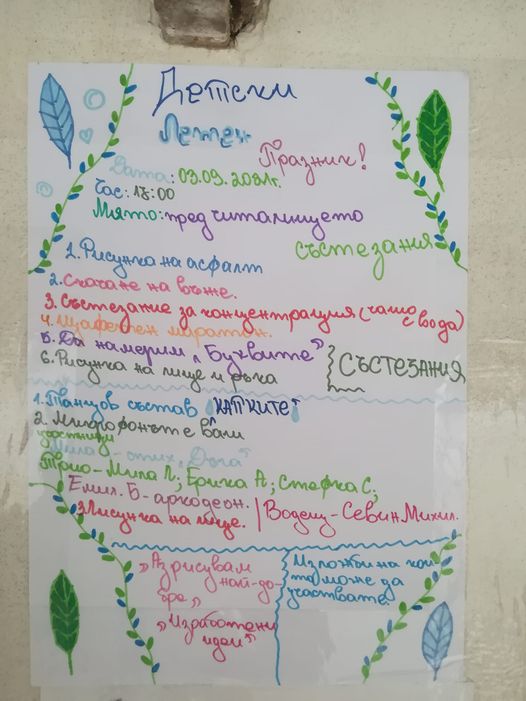 Детски
Летен
Празник!
Дата: 03.09.2021г.
Час: 18:00
Място: пред читалището
състезания
1. Рисунка на асфалт
2. Скачане на въже.
3. Състезание за концентрация (чаша
с вода)
4. Щафетен маратон.
5. Да намерим „Буквите"
6. Рисунка на лице и ръка
СЪСТЕЗАНИЯ
1. Танцов състав „КАПКИТЕ"
2. Микрофонът е във
участници
Мила - стих „Дъга"
Трио - Мила Л; Ерика А; Стефка С;
Емил. Б - аркодеон.
3. Рисунка на лице. | Водещ - Севин Михил.
„Аз рисувам
най-до-
бре„
„Изработени
идеи"
Изложби на кои
то може да
участвате.